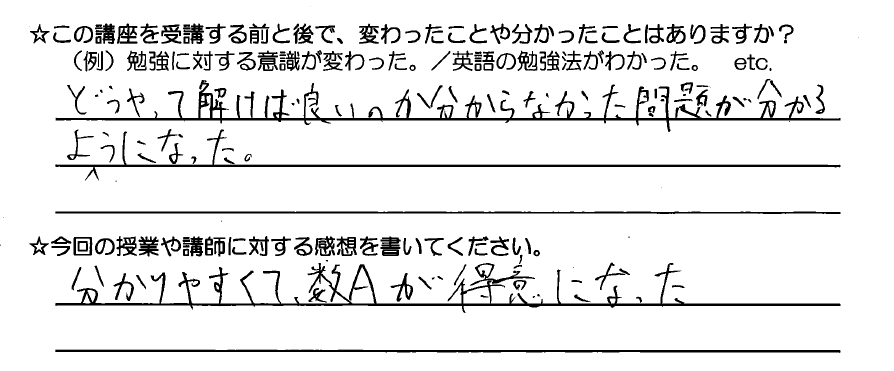 ☆この講座を受講する前と後で、変わったことや分かったことはありますか？
（例）勉強に対する意識が変わった。／英語の勉強法がわかった。　etc.
どうやって解けば良いのか分からなかった問題が分かる
ようになった。
☆今回の授業や講師に対する感想を書いてください。
分かりやすくて、数Aが得意になった